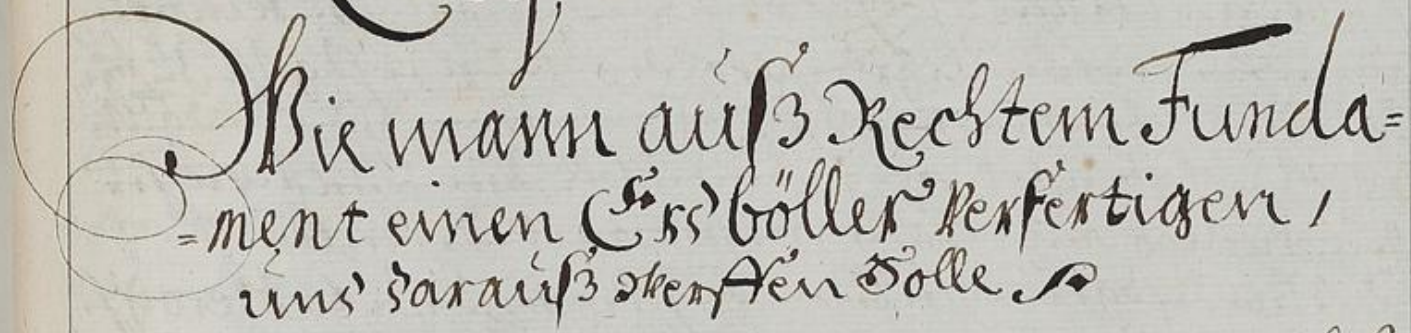 Wie mann auß Rechtem Funda=
=ment einen Erdböller Verfertigen /
und darauß Werffen Solle